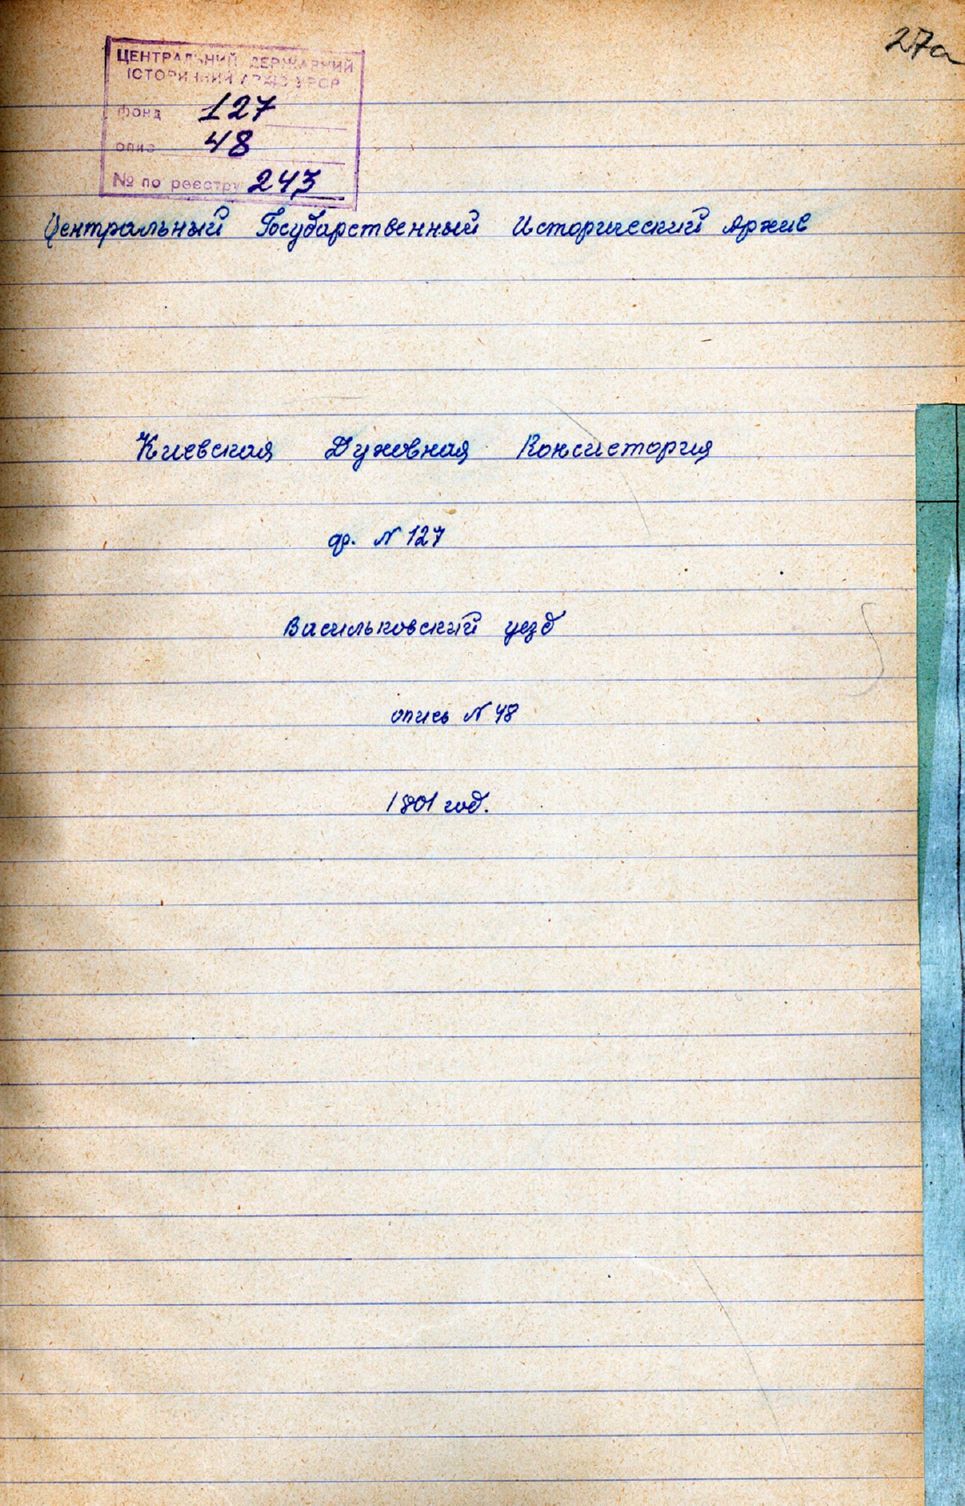 27а
ЦЕНТРАЛЬНИЙ ДЕРЖАВНИЙ
ІСТОРИЧНИЙ АРХІВ УРСР
фонд 127
опис 48
№ по реєстру 243
Центральный Государственный Исторический Архив
Киевская Духовная Консистория
ф. N 127
Васильковский уезд
опись N 48
1801 год.